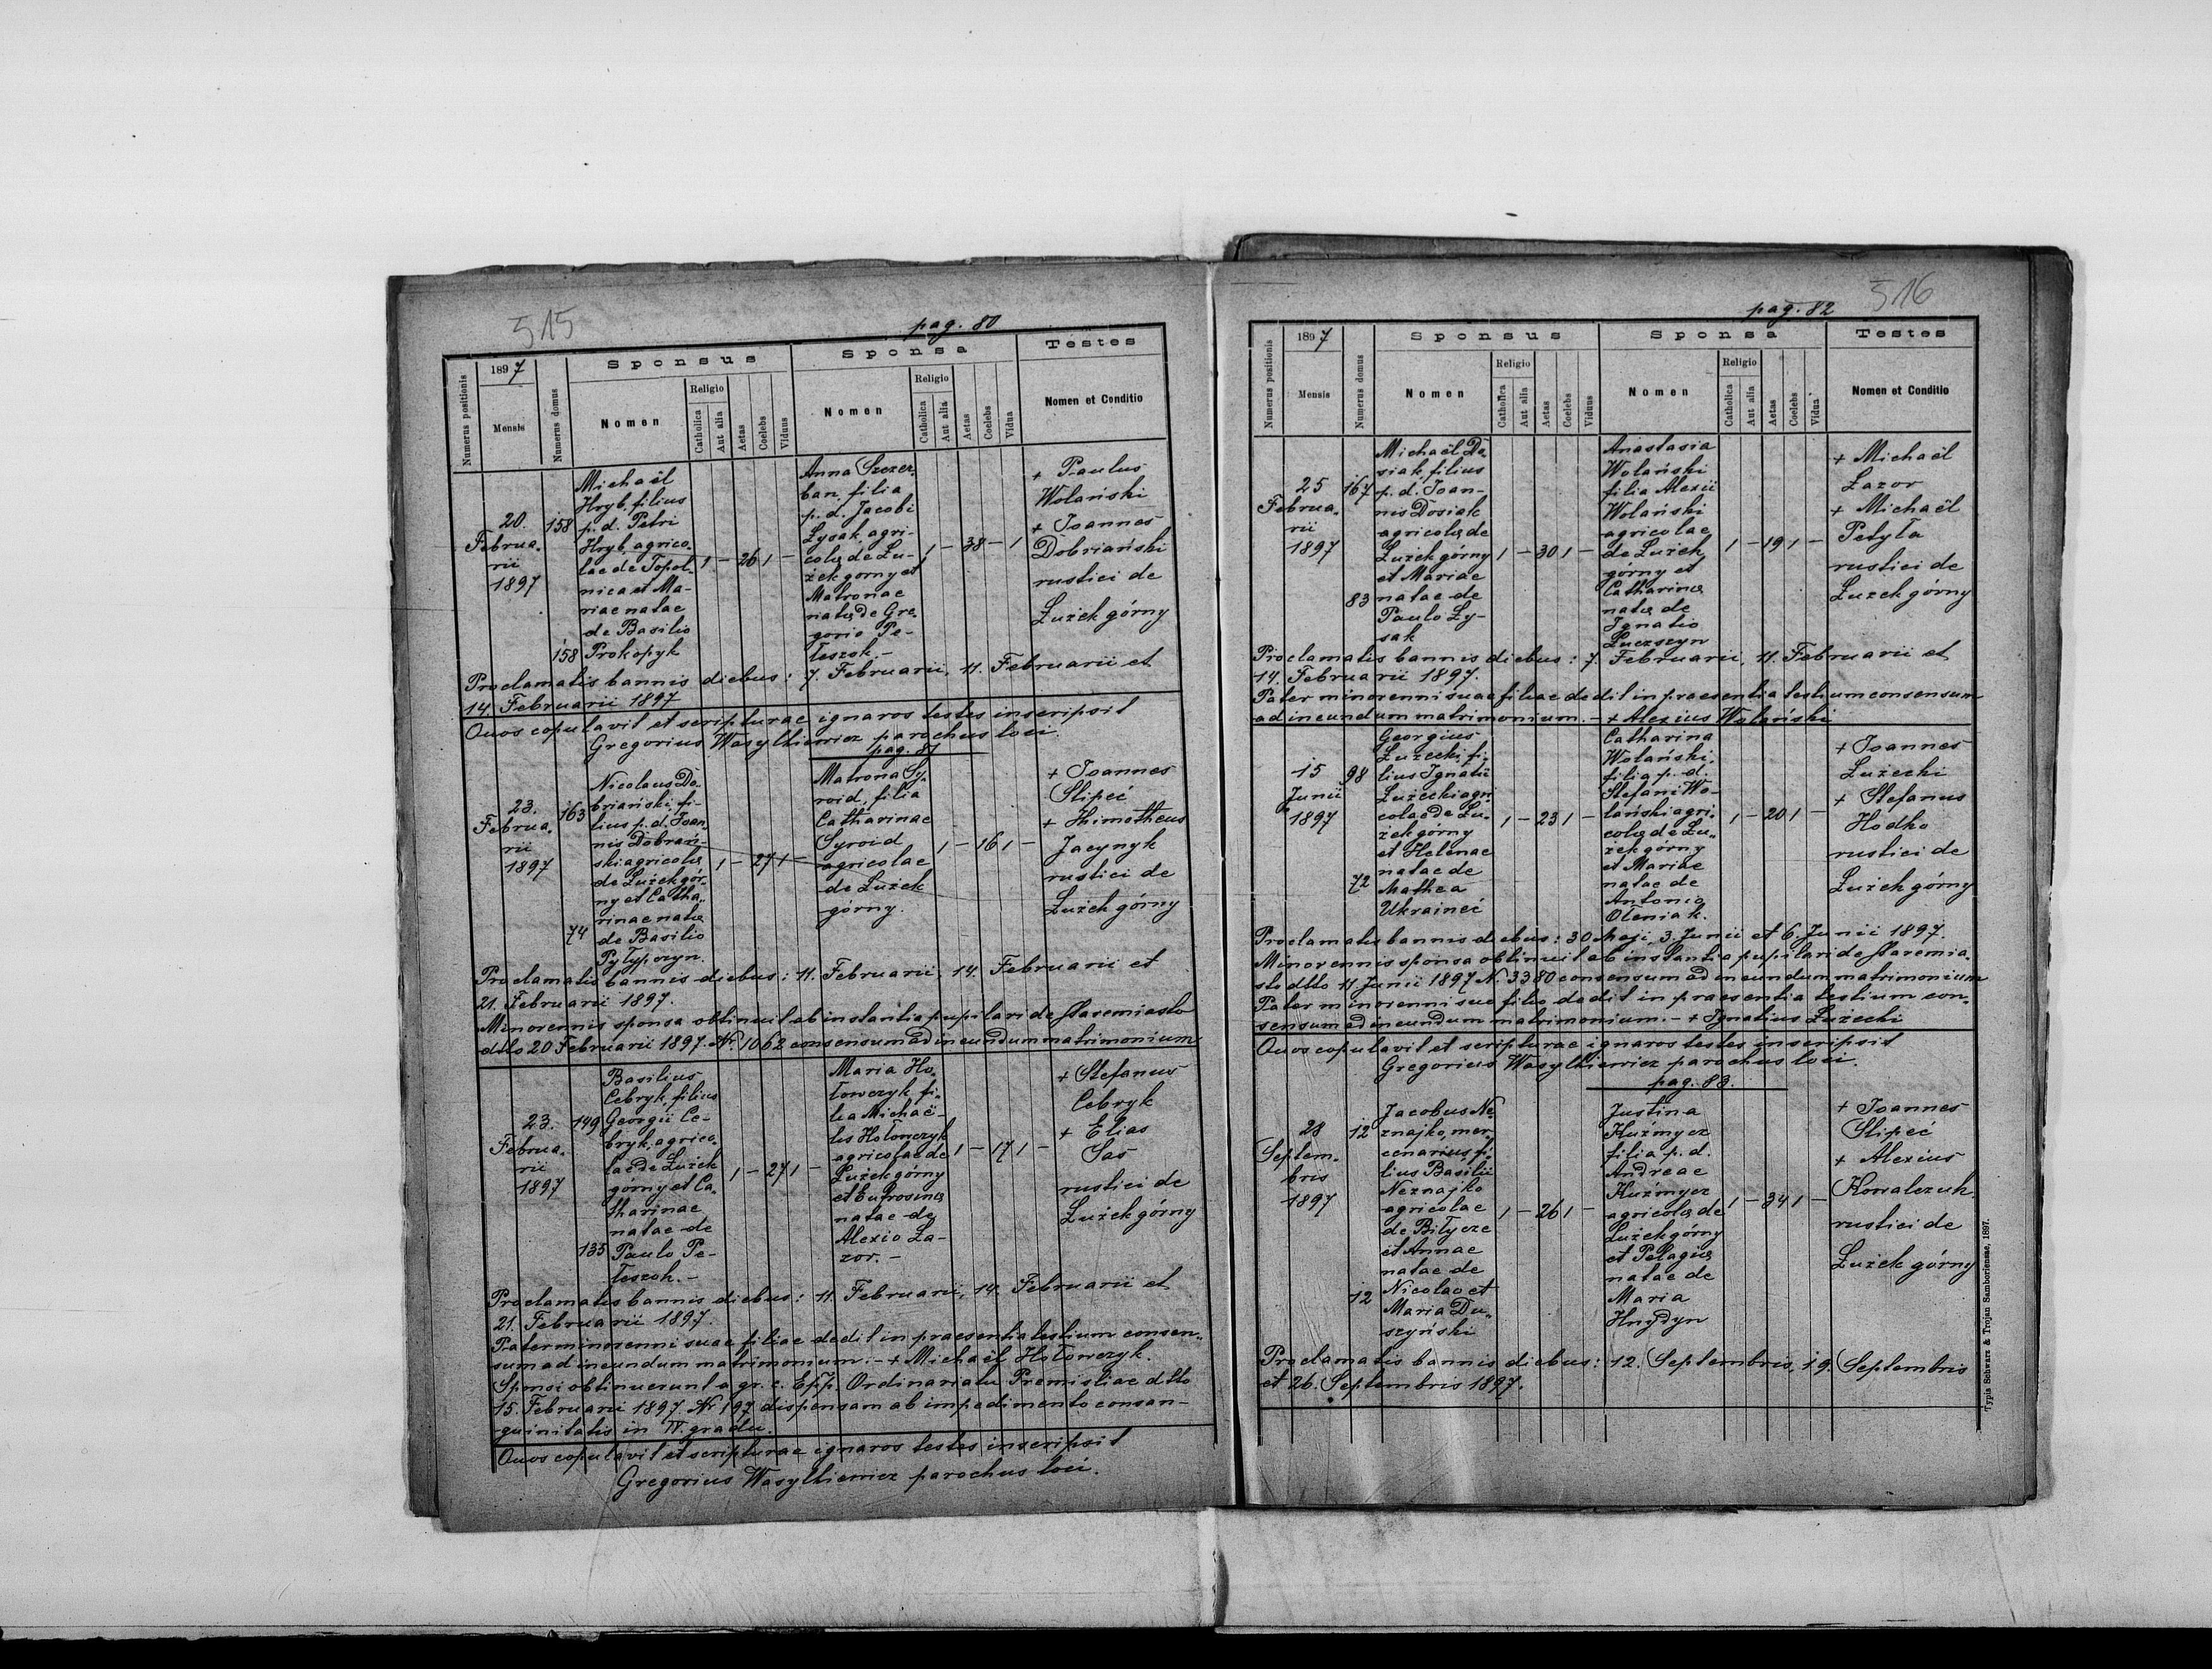 515
pag. 80
Numerus positionis
1897
Mensis
Numerus domus
Sponsus
Nomen
Religio
Catholica
Aut alia
Aetas
Coelebs
Viduus
Sponsa
Nomen
Religio
Catholica
Aut alia
Aetas
Coelebs
Vidua
Testes
Nomen et Conditio
20.
Februa„
rii
1897
158
158
Michaël
Hryb, filius
p. d. Petri
Hryb, agrico„
lae de Topol„
nica et Ma-
riae natae
de Basilio
Prokopyk
1 – 26 1 –
Anna Szczer„
ban, filia
p. d. Jacobi
Łysak, agri-
colę de Łu-
żek gorny et
Matronae
natę de Gre-
gorio Pe-
łeszok. –
1 – 38 – 1
+ Paulus
Wolański
+ Joannes
Dobriański
rustici de
Łużek górny
Proclamatis bannis diebus: 7. Februarii, 11. Februarii et
14. Februarii 1897
Quos copulavit et scripturae ignaros testes inscripsit
Gregorius Wasylkiewicz parochus loci.
pag. 81
23.
Februa„
rii
1897
163
74
Nicolaus Do-
briański, fi-
lius p. d. Joan„
nis Dobrań-
ski agricolę
de Łużek gór„
ny et Catha„
rinae natę
de Basilio
Pyłypczyn.
1 – 27 1 –
Matrona Sy„
roid, filia
Catharinae
Syroid
agricolae
de Łużek
górny.
1 – 16 1 –
+ Joannes
Slipeć
+ Thimotheus
Jacynyk
rustici de
Łużek górny
Proclamatis bannis diebus: 11. Februarii, 14. Februarii et
21. Februarii 1897.
Minorennis sponsa obtinuit ab instantia pupilari de Staremiasto
dtto 20 Februarii 1897. Nr. 1062 consensum ad ineundum matrimonium
23.
Februa„
rii
1897
149
135
Basilius
Cebryk, filius
Georgii Ce-
bryk, agrico„
lae de Łużek
górny et Ca„
tharinae
natae de
Paulo Pe-
łeszok. –
1 – 27 1 –
Maria Ho„
łowczyk, fi„
lia Michaë-
lis Hołowczyk
agricolae de
Łużek górny
et Eufrosinę
natae de
Alexio Ła-
zor. –
1 – 17 1 –
+ Stefanus
Cebryk
+ Elias
Sas
rustici de
Łużek górny
Proclamatis bannis diebus: 11. Februarii, 14. Februarii et
21. Februarii 1897.
Pater minorenni suae filiae dedit in praesentia testium consen„
sum ad ineundum matrimonium. – + Michaël Hołowczyk.
Sponsi obtinuerunt a gr. c. Epp. Ordinariatu Premisliae dtto
15. Februarii 1897. Nr 197 dispensam ab impedimento consan-
guinitatis in IV. gradu.
Quos copulavit et scripturae ignaros testes inscripsit
Gregorius Wasylkiewicz parochus loci.
516
pag. 82
Numerus positionis
1897
Mensis
Numerus domus
Sponsus
Nomen
Religio
Catholica
Aut alia
Aetas
Coelebs
Viduus
Sponsa
Nomen
Religio
Catholica
Aut alia
Aetas
Coelebs
Vidua
Testes
Nomen et Conditio
25
Februa„
rii
1897
167
83
Michaël Do„
siak, filius
p. d. Joan-
nis Dosiak
agricolę de
Łużek górny
et Mariae
natae de
Paulo Ły-
sak
1 – 30 1 –
Anastasia
Wolański
filia Alexii
Wolański
agricolae
de Łużek
górny et
Catharinę
natę de
Ignatio
Łuczszyn
1 – 19 1 –
+ Michaël
Łazor
+ Michaël
Petyła
rustici de
Łużek górny
Proclamatis bannis diebus: 7. Februarii, 11. Februarii et
14. Februarii 1897.
Pater minorenni suae filiae dedit in praesentia testium consensum
ad ineundum matrimonium. – + Alexius Wolański
15
Junii
1897
98
72
Georgius
Łużecki, fi-
lius Ignatii
Łużecki agri„
colae de Łu„
żek górny
et Helenae
natae de
Mathea
Ukraineć
1 – 23 1 –
Catharina
Wolański,
filia p. d.
Stefani Wo-
lański agri„
colę de Łu„
żek górny
et Mariae
natae de
Antonio
Oleniak.
1 – 20 1 –
+ Joannes
Łużecki
+ Stefanus
Hodko
rustici de
Łużek górny
Proclamatis bannis diebus: 30 Maji, 3. Junii et 6. Junii 1897.
Minorennis sponsa obtinuit ab instantia pupilari de Staremia„
sto dtto 11 Junii 1897 N. 3380 consensum ad ineundum matrimonium
Pater minorenni suo filio dedit in praesentia testium con„
sensum ad ineundum matrimonium. – + Ignatius Łużecki
Quos copulavit et scripturae ignaros testes inscripsit
Gregorius Wasylkiewicz parochus loci.
pag. 83.
28
Septem„
bris
1897
12
12
Jacobus Ne„
znajko, mer„
cenarius fi„
lius Basilii
Neznajko
agricolae
de Biłycze
et Annae
natae de
Nicolao et
Maria Du„
szyński
1 – 26 1 –
Justina
Kuźmycz
filia p. d.
Andreae
Kuźmycz
agricolę de
Łużek górny
et Pelagię
natae de
Maria
Hnydyn
1 – 34 1 –
+ Joannes
Slipeć
+ Alexius
Kowalczuk
rustici de
Łużek górny
Proclamatis bannis diebus: 12. Septembris, 19. Septembris
et 26. Septembris 1897.
Typis Schwarz & Trojan Samboriense, 1897.